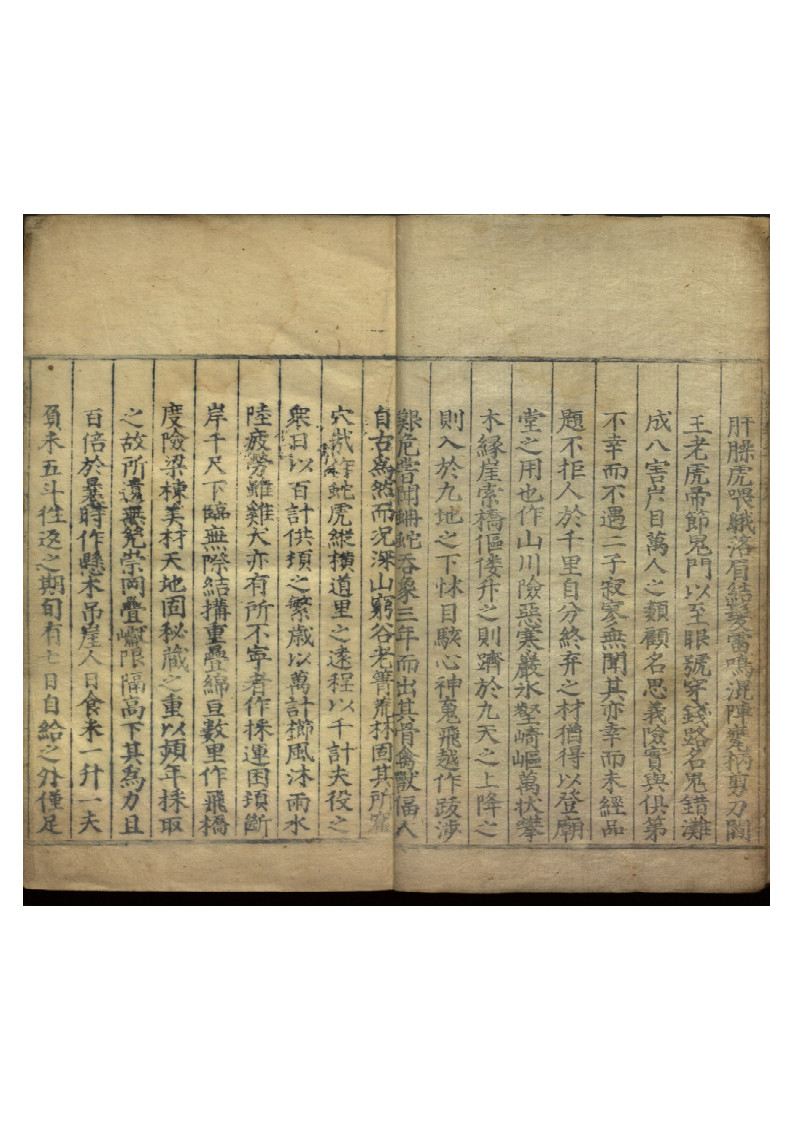 肝臊虎喂蛾落眉結髮雷鳴混陣甕柄剪刀關
王老虎帚節鬼門以至眼號穿錢路名鬼錯灘
成八害岸目萬人之類顧名思義險實與俱第
不幸而不遇二子寂寥無聞其亦幸而未經品
題不拒人於千里自分終弃之材猶得以登廟
堂之用也作山川險惡寒巖氷壑崎嶇萬狀攀
木緣崖索橋傴僂升之則躋於九天之上降之
則入於九地之下怵目駭心神䰟飛越作跋涉
艱危嘗聞蚺蛇吞象三年而出其骨禽獸偪人
自古為然而况深山窮谷老箐荒林固其所窟
穴哉作蛇虎縱橫道里之逺程以千計夫役之
衆日以百計供頓之繁歳以萬計櫛風沐雨水
陸疲勞雖雞犬亦有所不寧者作採運困頓斷
岸千尺下臨無際結搆重疊綿亘數里作飛橋
度險梁棟美材天地固秘藏之重以頻年採取
之故所遺無㡬崇岡疊巘限隔高下其為力且
百倍於曩時作懸木吊崖人日食米一升一夫
負米五斗徃返之期旬有七日自給之外僅足